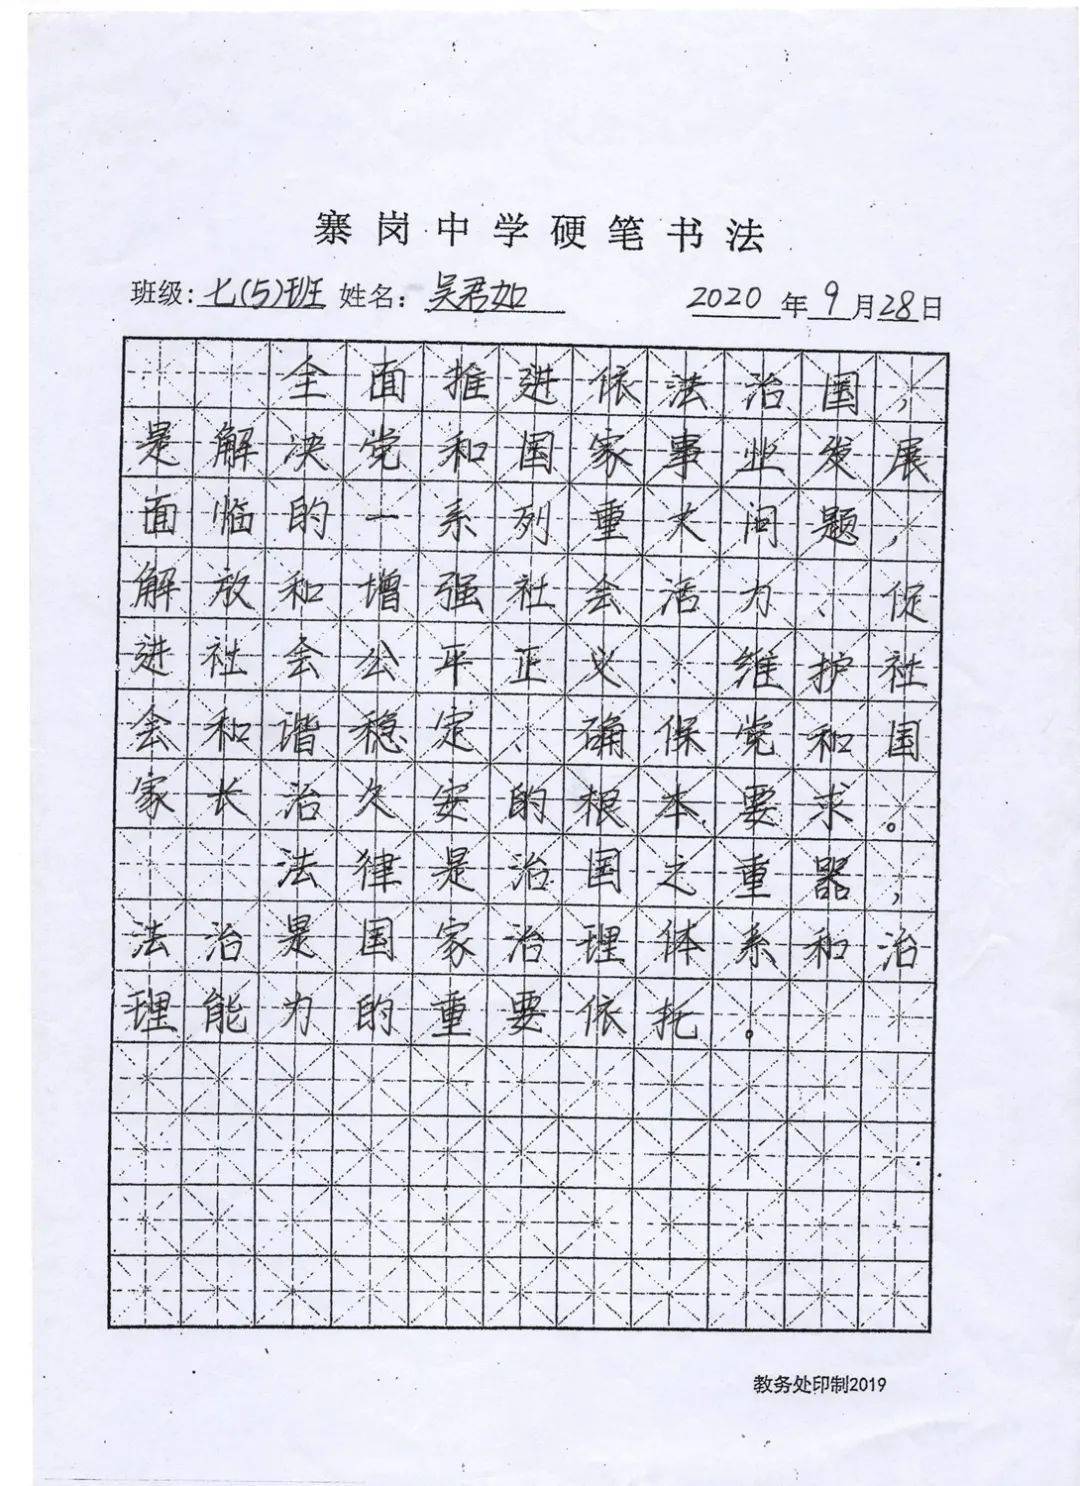 寨岗中学硬笔书法
班级：七(5)班 姓名：吴君如 2020年9月28日
全面推进依法治国，
是解决党和国家事业发展
面临的一系列重大问题，
解放和增强社会活力、促
进社会公平正义 维护社
会和谐稳定、确保党和国
家长治久安的根本要求。
法律是治国之重器，
法治是国家治理体系和治
理能力的重要依托。
教务处印制2019